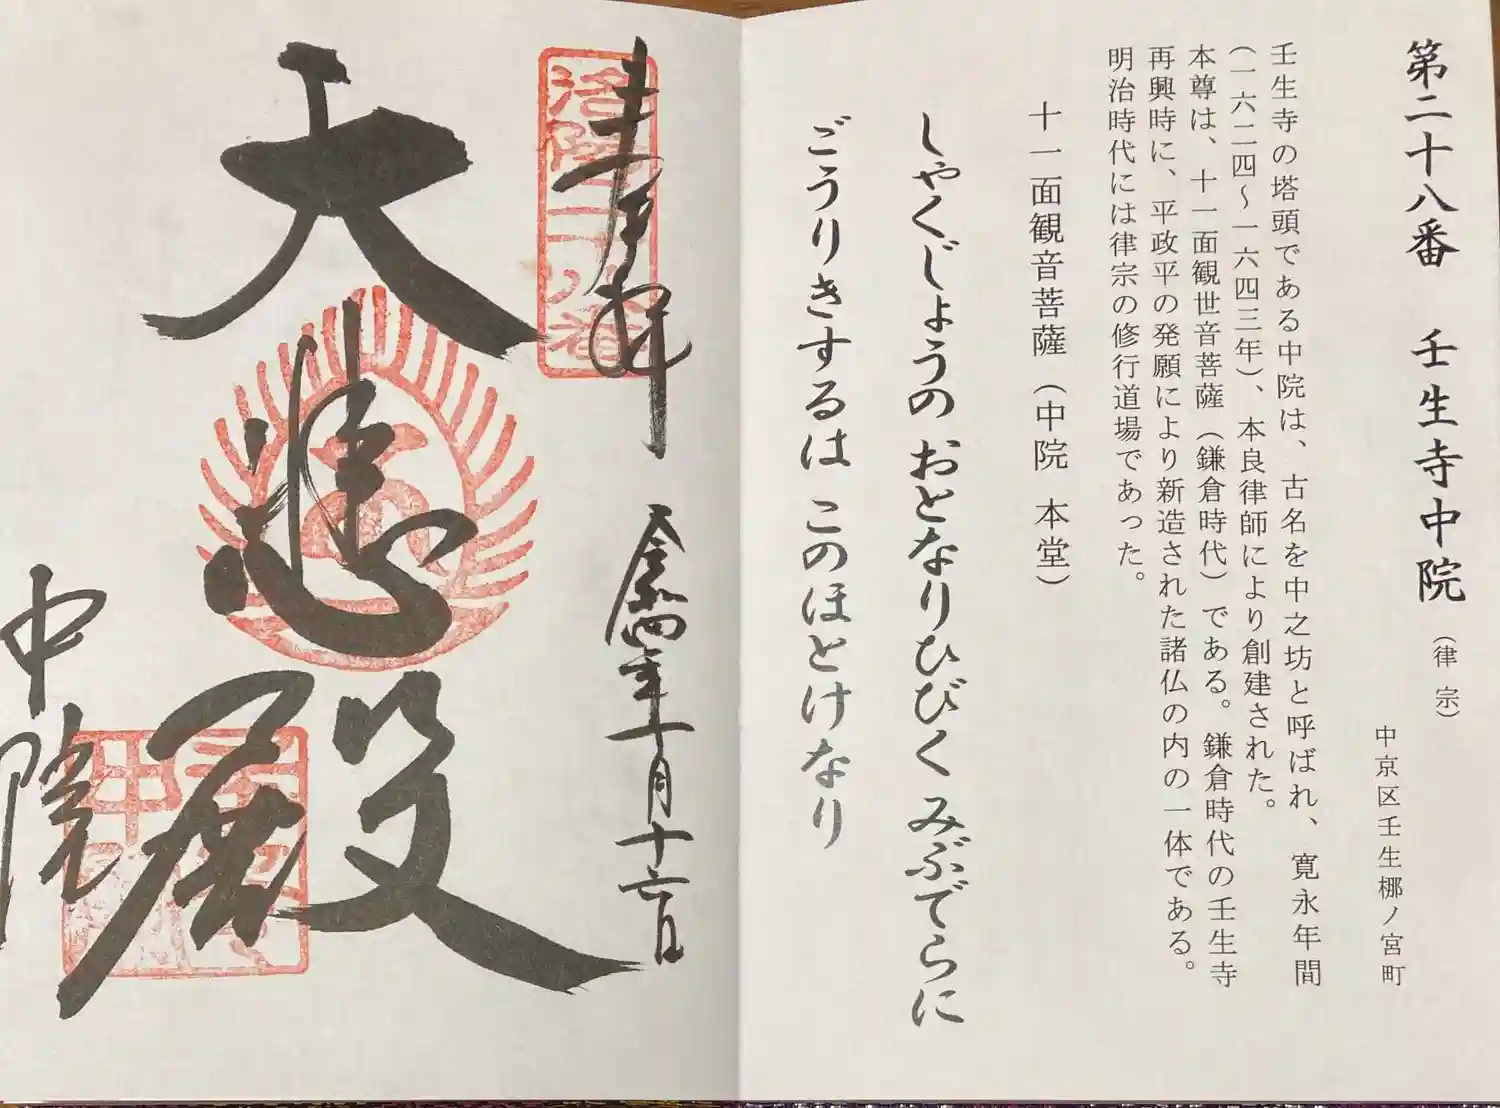 第二十八番 壬生寺中院（律宗）
中京区壬生梛ノ宮町
壬生寺の塔頭である中院は、古名を中之坊と呼ばれ、寛永年間
（一六二四～一六四三年）、本良律師により創建された。
本尊は、十一面観世音菩薩（鎌倉時代）である。鎌倉時代の壬生寺
再興時に、平政平の発願により新造された諸仏の内の一体である。
明治時代には律宗の修行道場であった。
十一面観音菩薩（中院 本堂）
しゃくじょうの おとなりひびく みぶでらに
ごうりきするは このほとけなり
奉拝
洛陽二八番
令和四年十一月十六日
大悲殿
中院